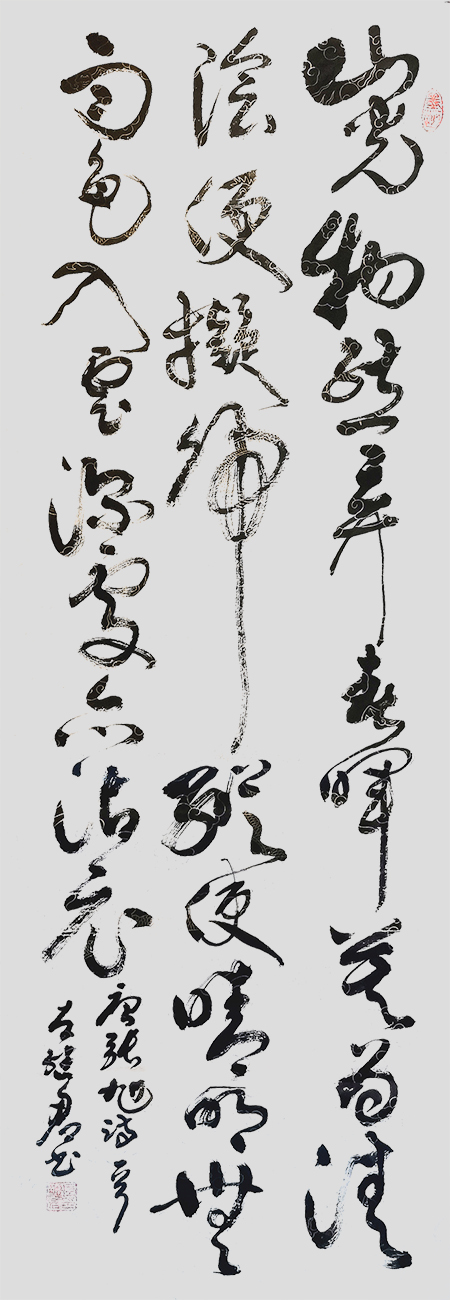 山光物態弄春暉莫為輕
陰便擬歸縱使晴明無
雨色入雲深處亦沾衣
唐張旭詩
繼君书